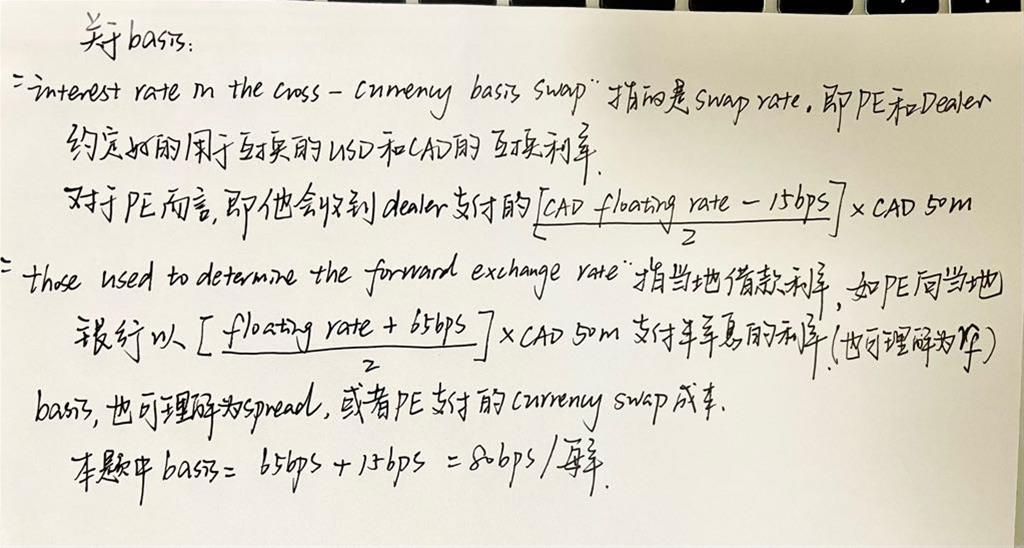 关于basis:
"interest rate in the cross-currency basis swap" 指的是swap rate,即PE和Dealer
约定好的用于互换的USD和CAD的互换利率.
对于PE而言,即他会收到dealer支付的[CAD floating rate - 15bps / 2] × CAD 50m
"those used to determine the forward exchange rate" 指当地借款利率,如PE向当地
银行以 [floating rate + 65bps / 2] × CAD 50m 支付半年息的利率.(也可理解为rf)
basis,也可理解为spread,或者PE支付的currency swap成本.
本题中basis = 65bps + 15bps = 80bps/每年.